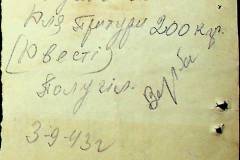 Для Притури 200 кр.
(Ювесті)
Получіл.
Верба
3-9-43г